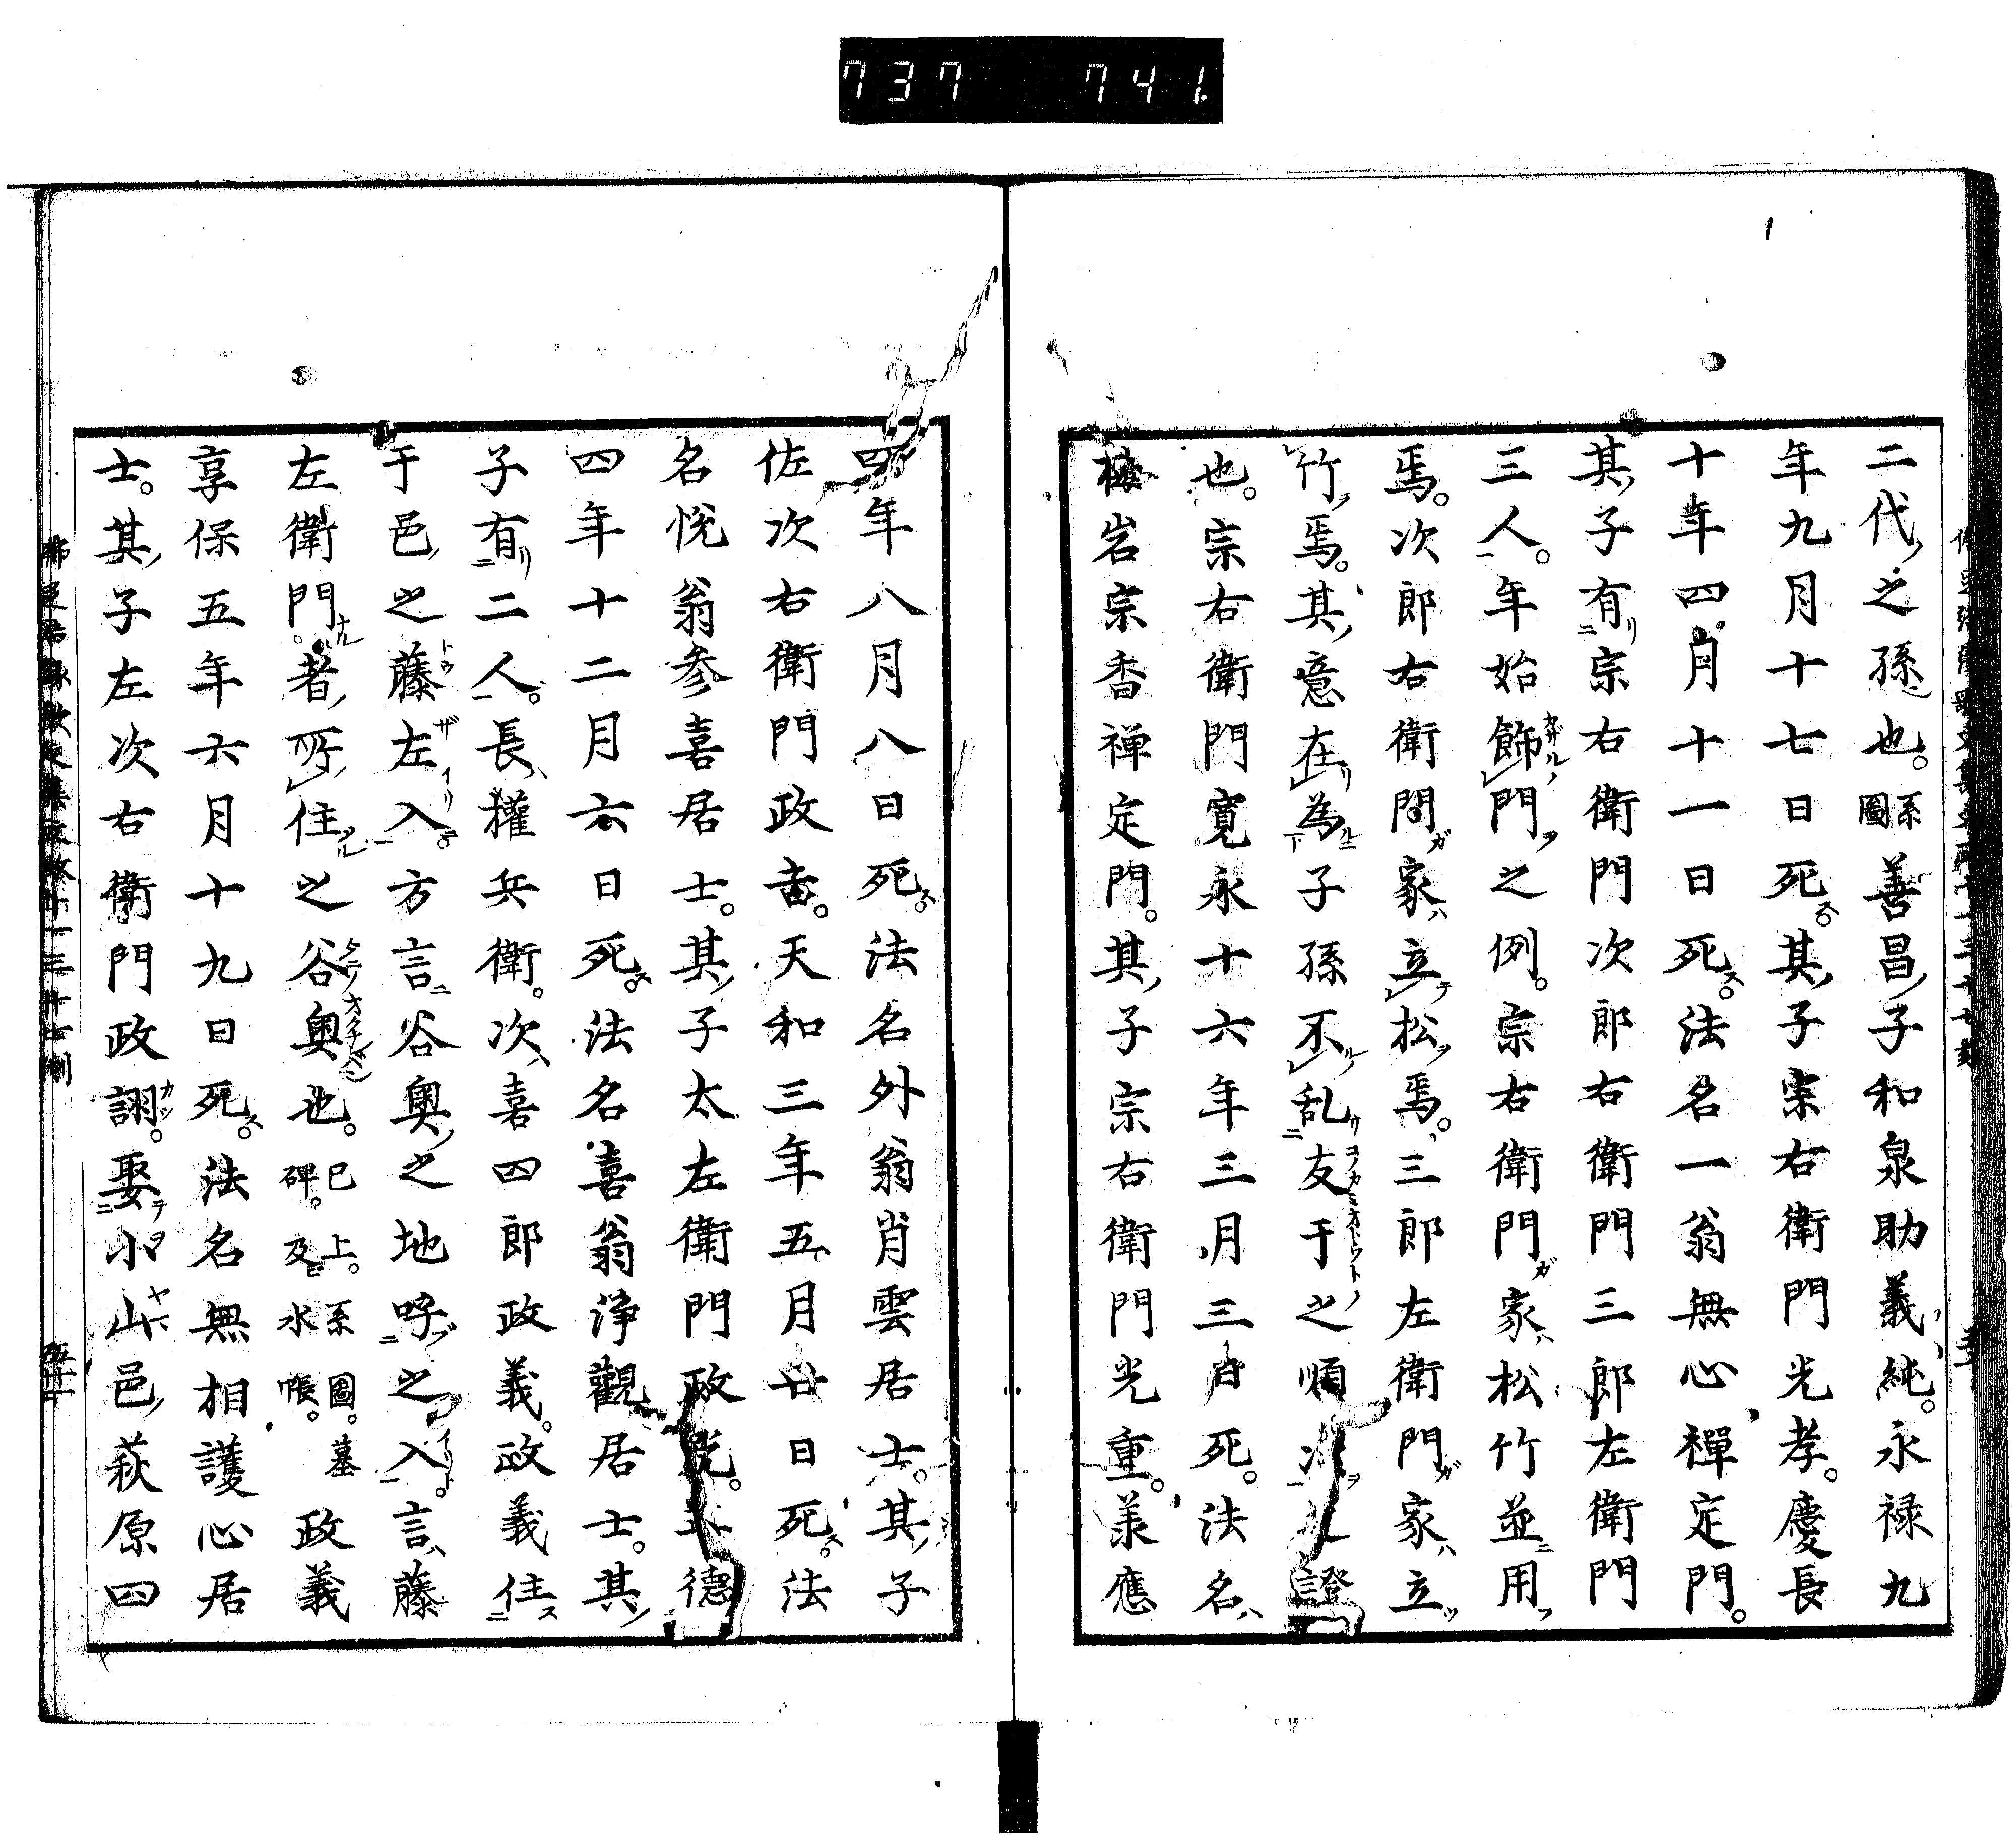 737 741.
二代之孫也。系圖善昌子和泉助義純。永禄九
年九月十七日死。其子宗右衛門光孝。慶長
十年四月十一日死。法名一翁無心禪定門。
其子有宗右衛門次郎右衛門三郎左衛門
三人。年始飾門之例。宗右衛門家松竹並用
焉。次郎右衛門家立松焉。三郎左衛門家立
竹焉。其意在為子孫不乱友于之順 證
也。宗右衛門寛永十六年三月三日死。法名
岩宗香禅定門。其子宗右衛門光重。承應
四年八月八日死。法名外翁肖雲居士。其子
佐次右衛門政吉。天和三年五月廿日死。法
名悦翁参喜居士。其子太左衛門政 德
四年十二月六日死。法名喜翁浄觀居士。其
子有二人。長權兵衛。次喜四郎政義。政義住
于邑之藤左入。方言谷奥之地呼之入。言藤
左衛門者所住之谷奥也。已上。系圖。墓碑。及水帳。政義
享保五年六月十九日死。法名無相護心居
士。其子左次右衛門政詡。娶小山邑萩原四